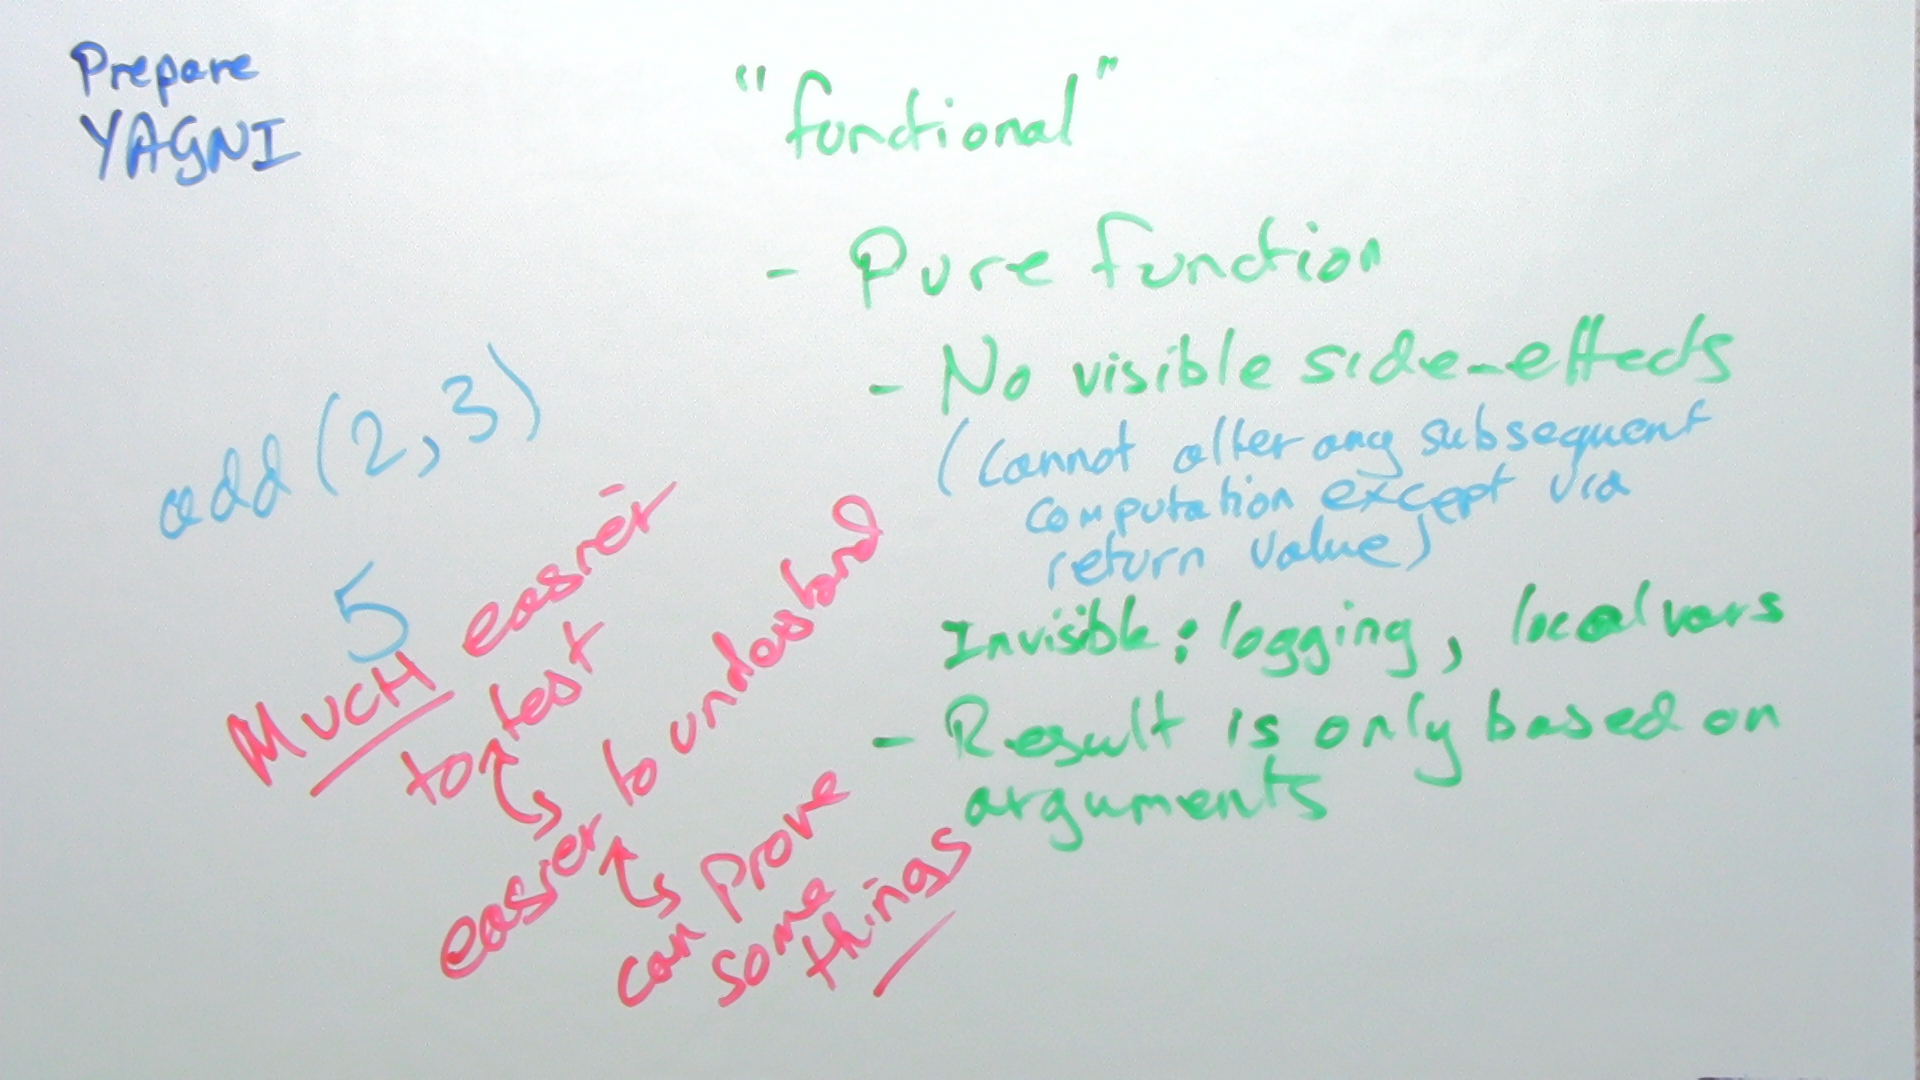 Prepare
YAGNI
"functional"
- Pure function
- No visible side-effects
(Cannot alter any subsequent
computation except via
return value)
Invisible: logging, local vars
- Result is only based on
arguments
add(2,3)
5
MUCH easier
to test
easier to understand
can prove
some
things